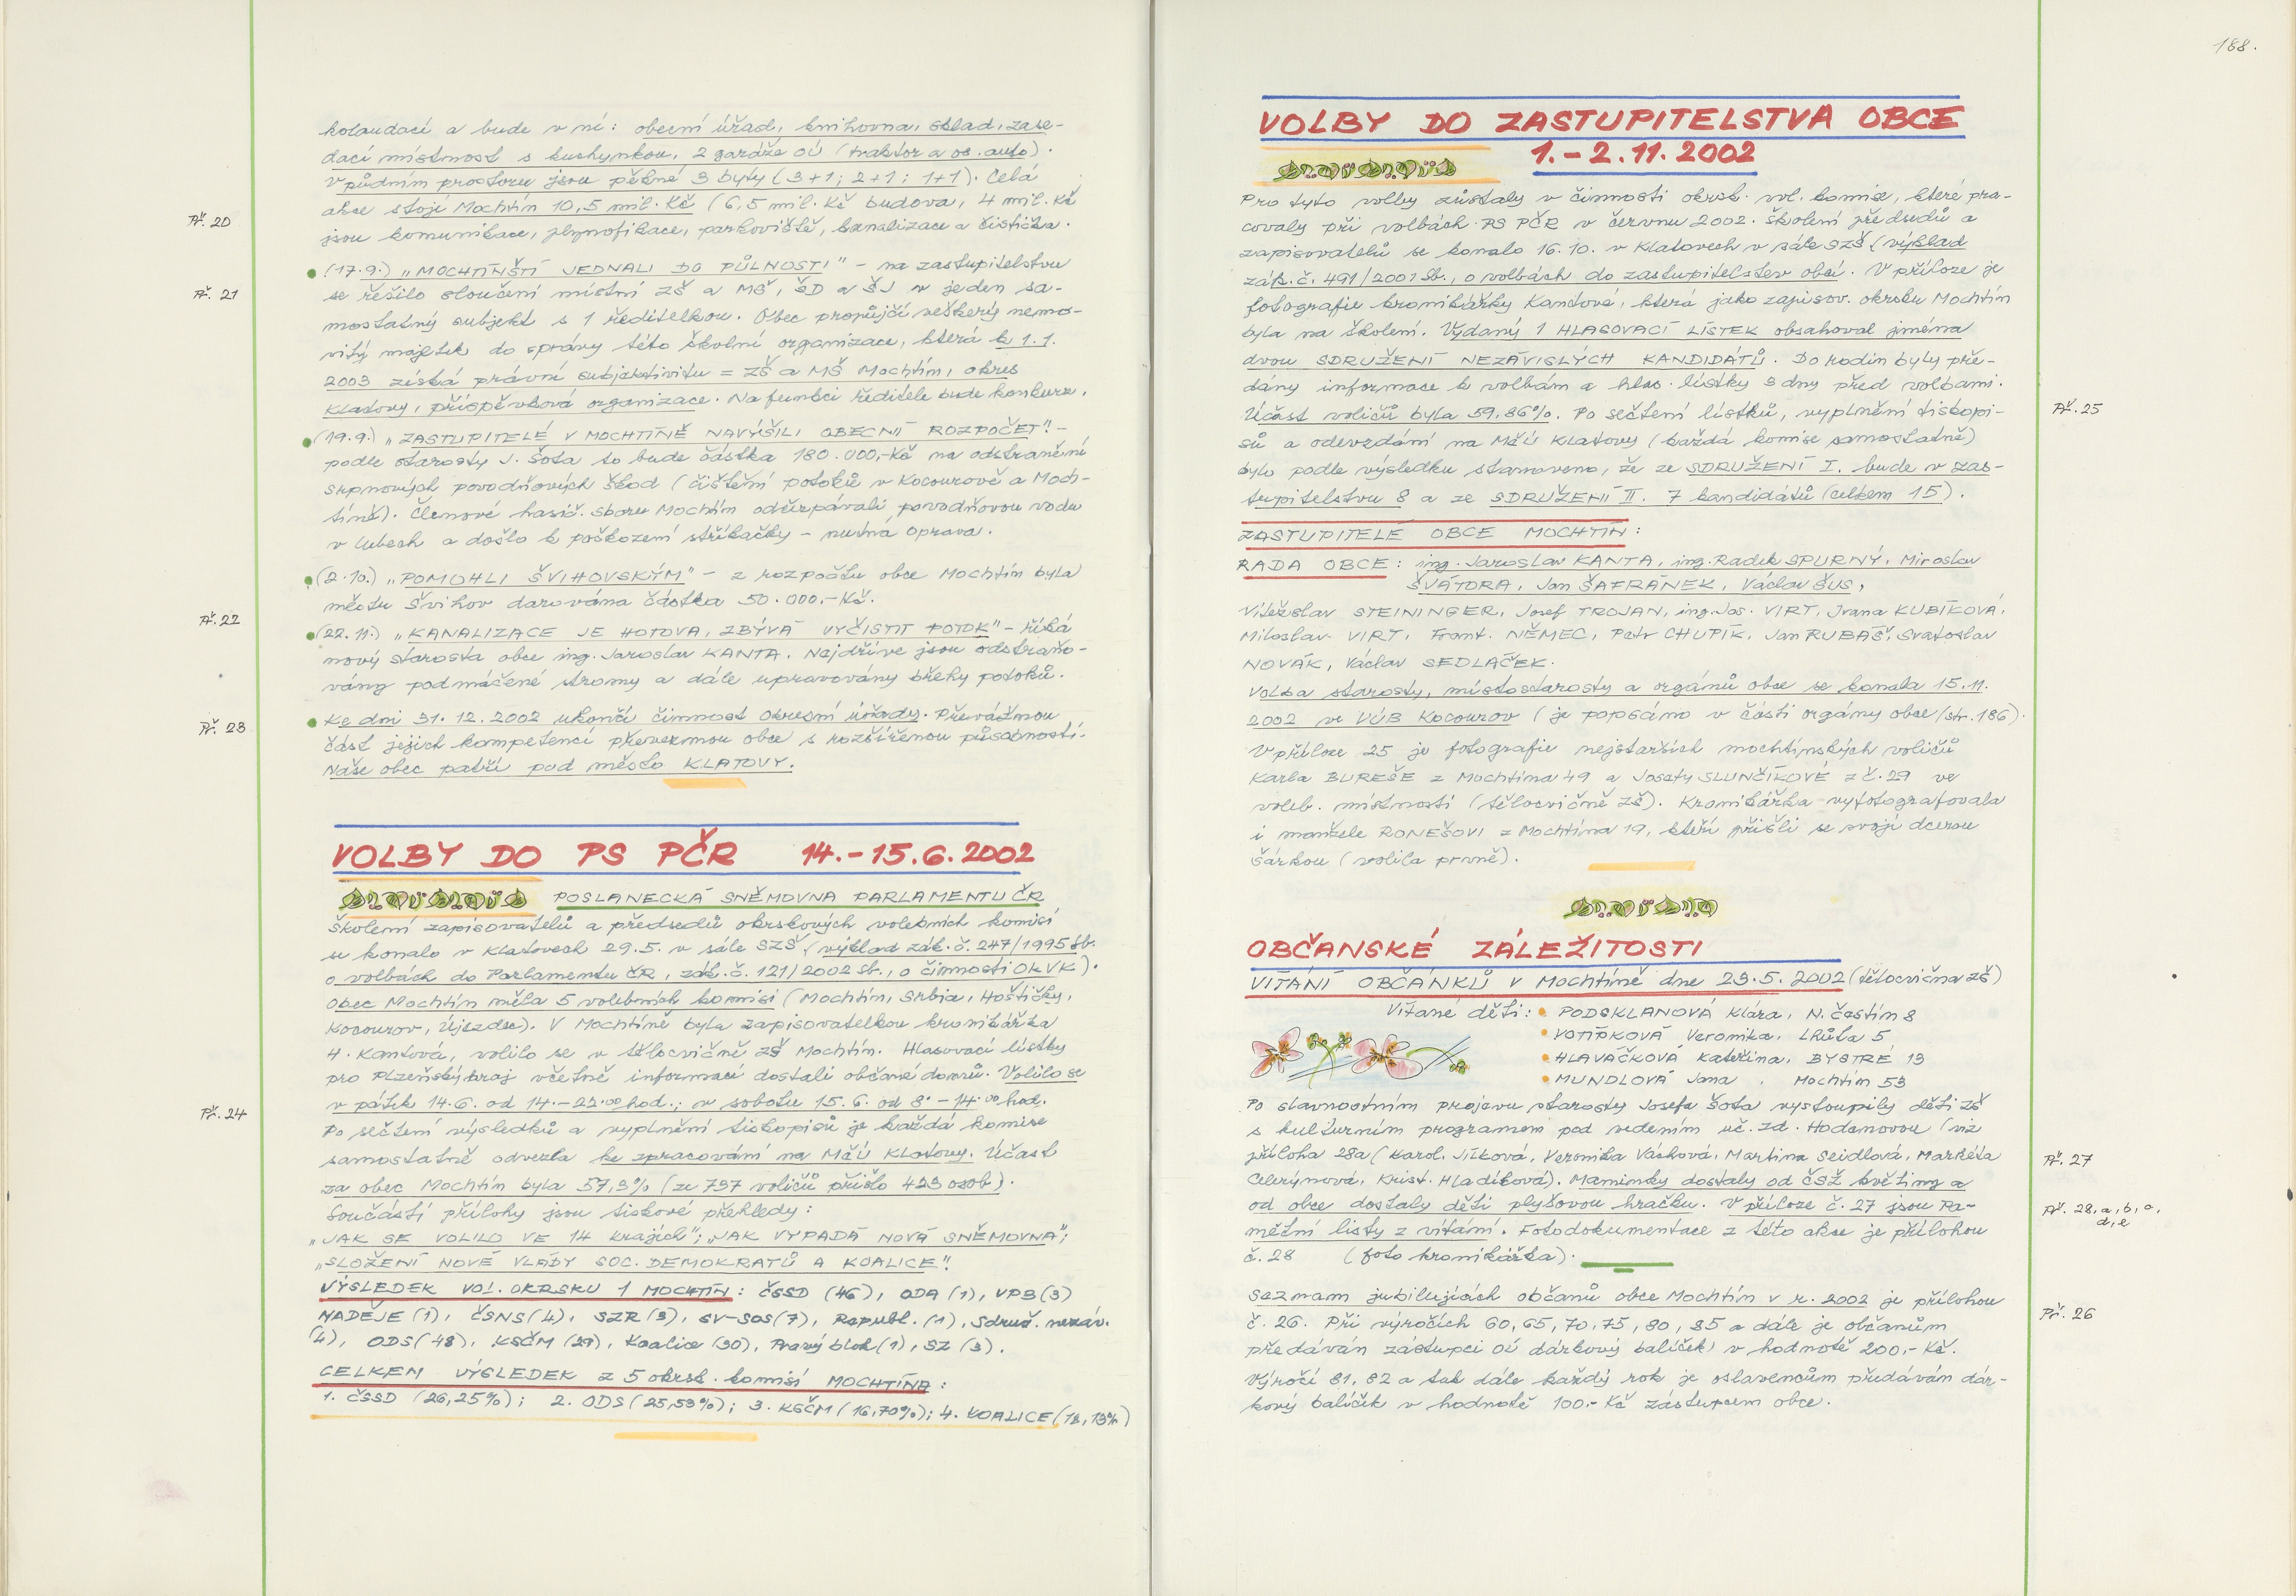 kolaudací a bude v ní: obecní úřad, knihovna, sklad, zase-
dací místnost s kuchyňkou, 2 garáže OÚ (traktor a os. auto).
V půdním prostoru jsou pěkné 3 byty (3+1; 2+1; 1+1). Celá
Př. 20
akce stojí Mochtín 10,5 mil. Kč (6,5 mil. Kč budova, 4 mil. Kč
jsou komunikace, plynofikace, parkoviště, kanalizace a čistička.
(17.9.) „MOCHTÍNŠTÍ JEDNALI DO PŮLNOCI" - na zastupitelstvu
Př. 21
se řešilo sloučení místní ZŠ a MŠ, ŠD a ŠJ v jeden sa-
mostatný subjekt s 1 ředitelkou. Obec propůjčí veškerý nemo-
vitý majetek do správy této školní organizace, která k 1.1.
2003 získá právní subjektivitu = ZŠ a MŠ Mochtín, okres
Klatovy, příspěvková organizace. Na funkci ředitele bude konkurz.
(19.9.) „ZASTUPITELÉ V MOCHTÍNĚ NAVÝŠILI OBECNÍ ROZPOČET" -
podle starosty J. Šota to bude částka 180.000,-Kč na odstranění
srpnových povodňových škod (čištění potoků v Kocourově a Moch-
tíně). Členové hasič. sboru Mochtín odčerpávali povodňovou vodu
v Lubech a došlo k poškození stříkačky - nutná oprava.
(2.10.) „POMOHLI ŠVIHOVSKÝM" - z rozpočtu obce Mochtín byla
městu Švihov darována částka 50.000,-Kč.
Př. 22
(22.11.) „KANALIZACE JE HOTOVA, ZBÝVÁ VYČISTIT POTOK" - říká
nový starosta obce ing. Jaroslav KANTA. Nejdříve jsou odstraňo-
vány podmáčené stromy a dále upravovány břehy potoků.
Př. 23
Ke dni 31.12.2002 ukončí činnost okresní úřady. Převážnou
část jejich kompetencí převezmou obce s rozšířenou působností.
Naše obec patří pod město KLATOVY.
VOLBY DO PS PČR 14.-15.6.2002
POSLANECKÁ SNĚMOVNA PARLAMENTU ČR
Školení zapisovatelů a předsedů okrskových volebních komisí
se konalo v Klatovech 29.5. v sále SZŠ (výklad zák. č. 247/1995 Sb.
o volbách do Parlamentu ČR, zák. č. 121/2002 Sb., o činnosti OKVK).
Obec Mochtín měla 5 volebních komisí (Mochtín, Srbice, Hoštičky,
Kocourov, Újezdec). V Mochtíně byla zapisovatelkou kronikářka
H. Kantová, volilo se v tělocvičně ZŠ Mochtín. Hlasovací lístky
pro Plzeňský kraj včetně informací dostali občané domů. Volilo se
v pátek 14.6. od 14.-22.00 hod.; v sobotu 15.6. od 8.-14.00 hod.
Př. 24
Po sečtení výsledků a vyplnění tiskopisů je každá komise
samostatně odvezla ke zpracování na MěÚ Klatovy. Účast
za obec Mochtín byla 57,9% (ze 797 voličů přišlo 423 osob).
Součástí přílohy jsou tiskové přehledy:
„JAK SE VOLILO VE 14 krajích"; „JAK VYPADÁ NOVÁ SNĚMOVNA";
„SLOŽENÍ NOVÉ VLÁDY SOC. DEMOKRATŮ A KOALICE".
VÝSLEDEK VOL. OKRSKU 1 MOCHTÍN: ČSSD (46), ODA (1), VPB (3)
NADĚJE (1), ČSNS (4), SZR (3), SV-SOS (7), Republ. (1), Sdruž. nezáv.
(4), ODS (48), KSČM (29), Koalice (30), Pravý blok (1), SZ (3).
CELKEM VÝSLEDEK z 5 okrsk. komisí MOCHTÍNA:
1. ČSSD (26,25%); 2. ODS (25,53%); 3. KSČM (16,70%); 4. KOALICE (18,13%)
188.
VOLBY DO ZASTUPITELSTVA OBCE
1.-2.11.2002
Pro tyto volby zůstaly v činnosti okrsk. vol. komise, které pra-
covaly při volbách PS PČR v červnu 2002. Školení předsedů a
zapisovatelů se konalo 16.10. v Klatovech v sále SZŠ (výklad
zák. č. 491/2001 Sb., o volbách do zastupitelstev obcí. V příloze je
fotografie kronikářky Kantové, která jako zapisov. okrsku Mochtín
byla na školení. Vydaný 1 HLASOVACÍ LÍSTEK obsahoval jména
dvou SDRUŽENÍ NEZÁVISLÝCH KANDIDÁTŮ. Do rodin byly pře-
dány informace k volbám a hlas. lístky 3 dny před volbami.
Účast voličů byla 59,86%. Po sečtení lístků, vyplnění tiskopi-
Př. 25
sů a odevzdání na MěÚ Klatovy (každá komise samostatně)
bylo podle výsledku stanoveno, že ze SDRUŽENÍ I. bude v zas-
tupitelstvu 8 a ze SDRUŽENÍ II. 7 kandidátů (celkem 15).
ZASTUPITELÉ OBCE MOCHTÍN:
RADA OBCE: ing. Jaroslav KANTA, ing. Radek SPURNÝ, Miroslav
ŠVÁTORA, Jan ŠAFRÁNEK, Václav ŠUS,
Vítězslav STEININGER, Josef TROJAN, ing. Jos. VIRT, Ivana KUBÍKOVÁ,
Miloslav VIRT, Frant. NĚMEC, Petr CHUPÍK, Jan RUBÁŠ, Svatoslav
NOVÁK, Václav SEDLÁČEK.
Volba starosty, místostarosty a orgánů obce se konala 15.11.
2002 ve VÚB Kocourov (je popsáno v části orgány obce/str. 186).
V příloze 25 je fotografie nejstarších mochtínských voličů
Karla BUREŠE z Mochtína 49 a Josefy SLUNČÍKOVÉ z č. 29 ve
voleb. místnosti (tělocvičně ZŠ). Kronikářka vyfotografovala
i manžele RONEŠOVI z Mochtína 19, kteří přišli se svojí dcerou
Šárkou (volila prvně).
OBČANSKÉ ZÁLEŽITOSTI
VÍTÁNÍ OBČÁNKŮ v Mochtíně dne 23.5.2002 (tělocvična ZŠ)
Vítané děti: PODSKLANOVÁ Klára, N. Čestín 8
VOTÍPKOVÁ Veronika, Lhůta 5
HLAVÁČKOVÁ Kateřina, BYSTRÉ 13
MUNDLOVÁ Jana, Mochtín 53
Po slavnostním projevu starosty Josefa Šota vystoupily děti ZŠ
s kulturním programem pod vedením uč. Zd. Hodanovou (viz
příloha 28a (Karol. Jílková, Veronika Váchová, Martina Seidlová, Markéta
Př. 27
Celerýnová, Krist. Hladíková). Maminky dostaly od ČSŽ květiny a
od obce dostaly děti plyšovou hračku. V příloze č. 27 jsou Pa-
Př. 28, a, b, c,
d, e
mětní listy z vítání. Fotodokumentace z této akce je přílohou
č. 28 (foto kronikářka).
Seznam jubilujících občanů obce Mochtín v r. 2002 je přílohou
Př. 26
č. 26. Při výročích 60, 65, 70, 75, 80, 85 a dále je občanům
předáván zástupci OÚ dárkový balíček v hodnotě 200,- Kč.
Výročí 81, 82 a tak dále každý rok je oslavencům předáván dár-
kový balíček v hodnotě 100.- Kč zástupcem obce.